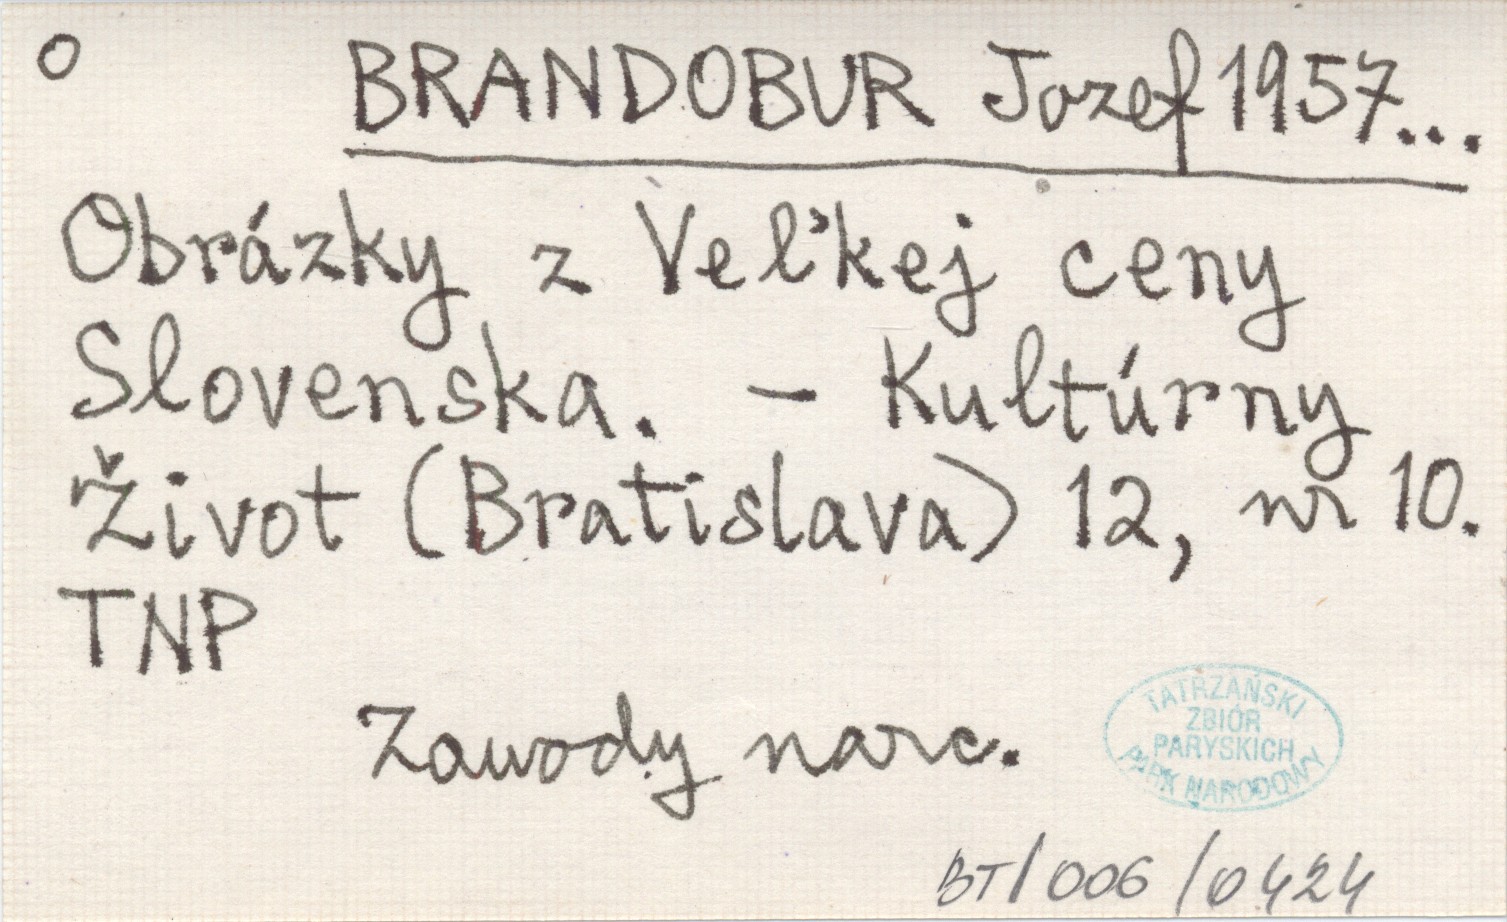 o BRANDOBUR Jozef 1957...
Obrázky z Veľkej ceny
Slovenska. – Kultúrny
Život (Bratislava) 12, nr 10.
TNP
Zawody narc.
TATRZAŃSKI
ZBIÓR
PARYSKICH
PARK NARODOWY
BT/006/0424